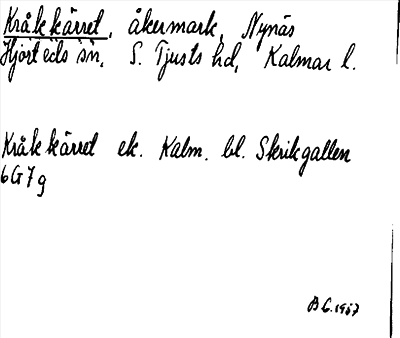 Kråkkärret, åkermark, Nynäs
Hjorteds sn, S. Tjusts hd, Kalmar l.
Kråkkärret ek. Kalm. bl. Skrikgallen
6G7g
B G. 1957